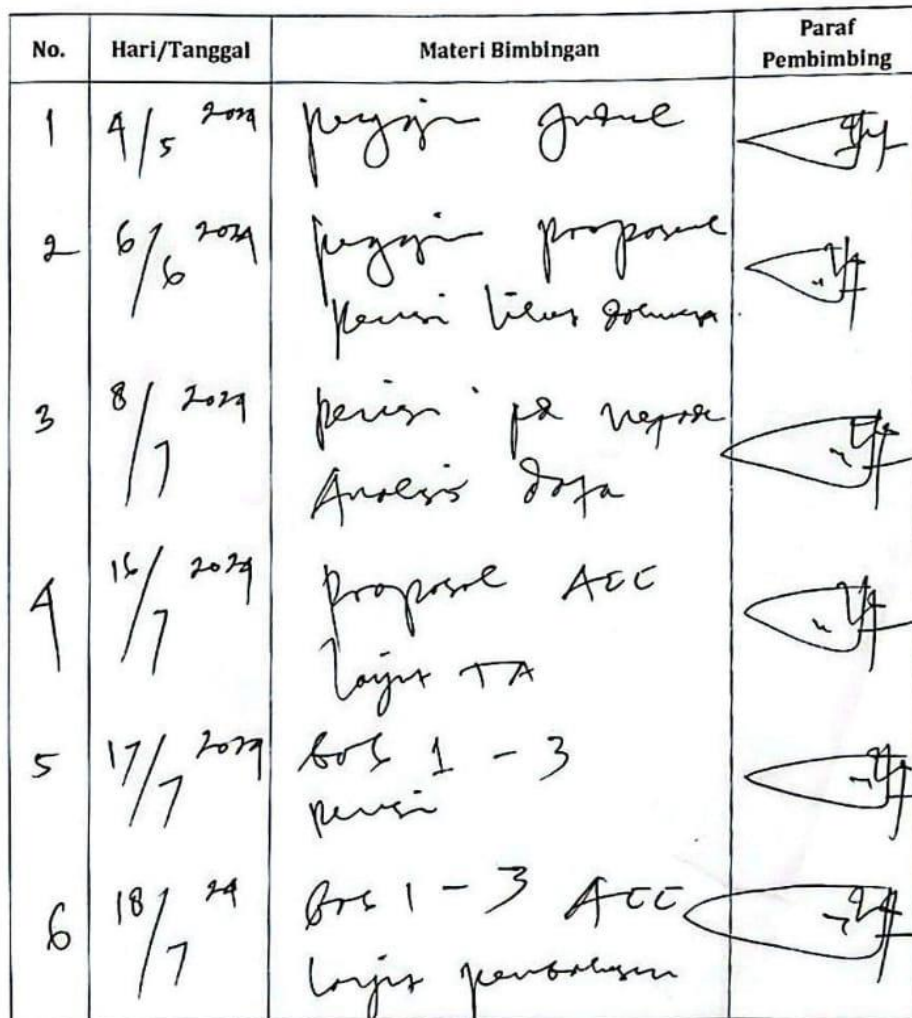 No. Hari/Tanggal Materi Bimbingan Paraf Pembimbing
1 4/5 2024 pengajuan judul
2 6/6 2024 pengajuan proposal
revisi
3 8/7 2024 revisi
Analisis data
4 15/7 2024 Proposal ACC
lanjut TA
5 17/7 2024 bab 1 - 3
revisi
6 18/7 24 bab 1 - 3 ACC
lanjut pembahasan